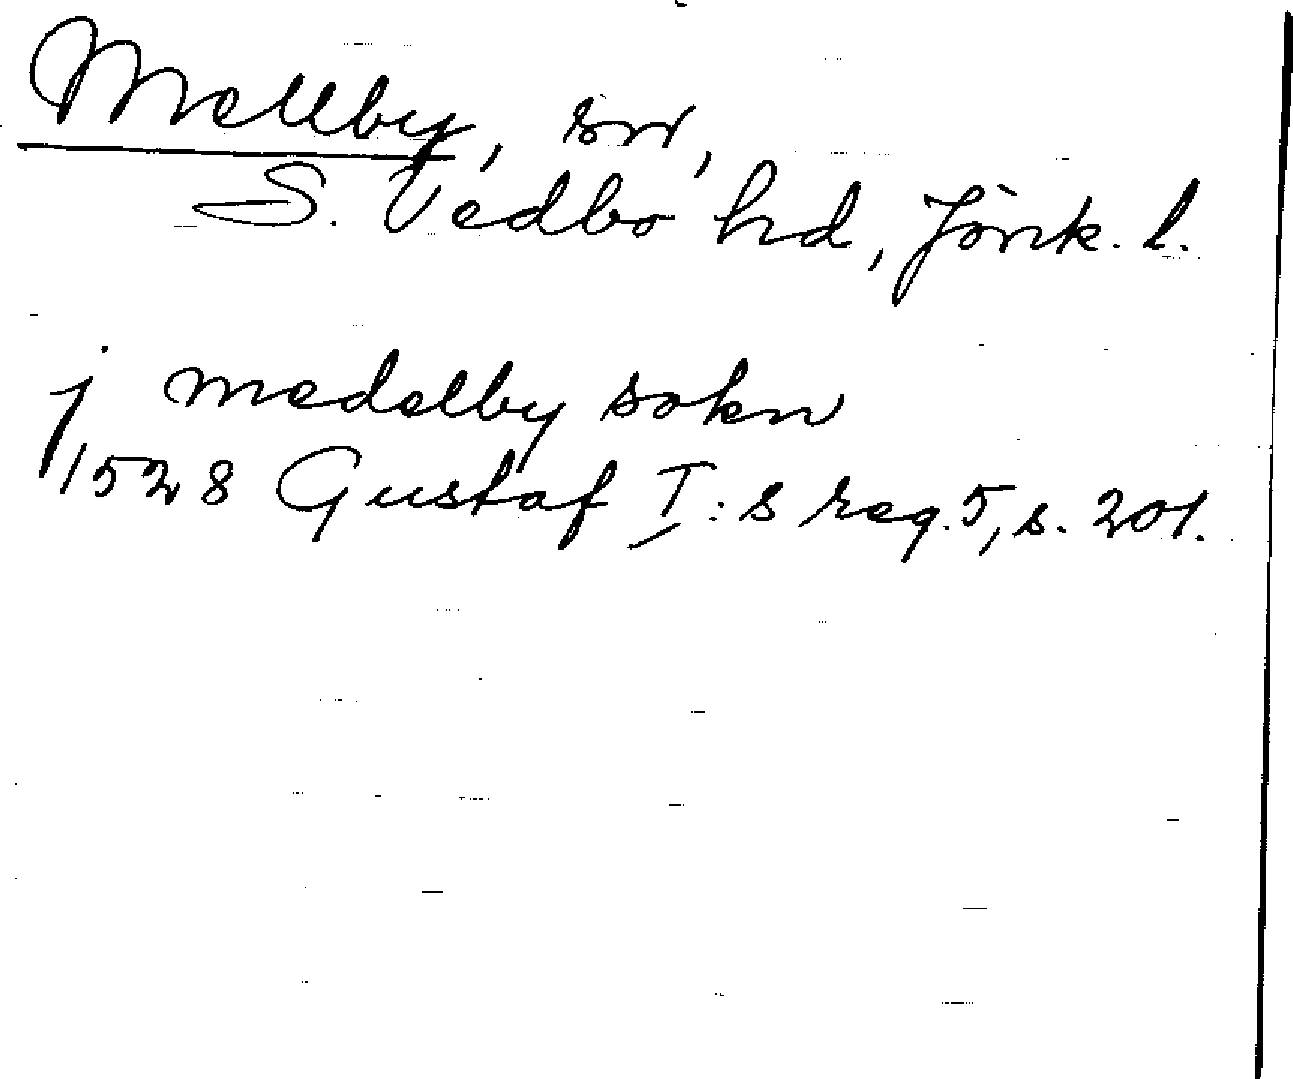 Mellby, sn,
S. Vedbo hd, Jönk. l.
j medelby sokn
1528 Gustaf I:s reg. 5, s. 201.